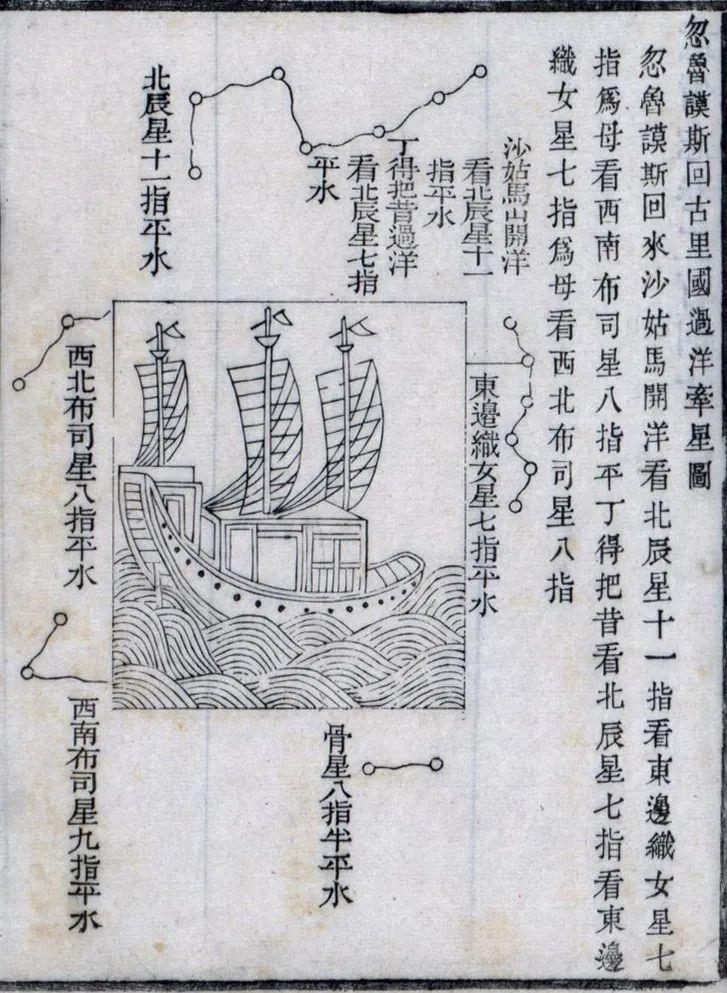 忽魯謨斯回古里國過洋牽星圖
忽魯謨斯回來沙姑馬開洋看北辰星十一指看東邊織女星七
指爲母看西南布司星八指平丁得把昔看北辰星七指看東邊
織女星七指爲母看西北布司星八指
沙姑馬山開洋
看北辰星十一
指平水
丁得把昔過洋
看北辰星七指
平水
北辰星十一指平水
東邊織女星七指平水
西北布司星八指平水
骨星八指半平水
西南布司星九指平水